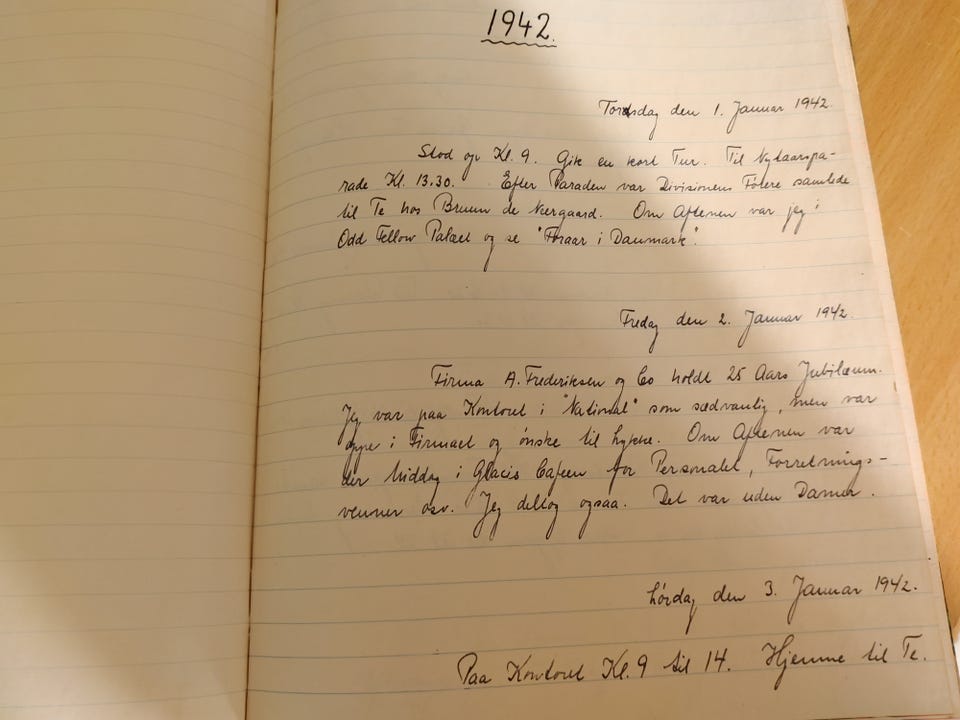 1942.
Torsdag den 1. Januar 1942.
Stod op Kl. 9. Gik en kort Tur. Til Nytaarspa-
rade Kl. 13.30. Efter Paraden var Divisionens Førere samlede
til Te hos Bruun de Neergaard. Om Aftenen var jeg i
Odd Fellow Palæet og se "Foraar i Danmark".
Fredag den 2. Januar 1942.
Firma A. Frederiksen og Co holdt 25 Aars Jubilæum.
Jeg var paa Kontoret i "National" som sædvanlig, men var
oppe i Firmaet og ønske til Lykke. Om Aftenen var
der Middag i Glacis Cafeen for Personalet, Forretnings-
venner osv. Jeg deltog ogsaa. Det var uden Damer.
Lørdag den 3. Januar 1942.
Paa Kontoret Kl. 9 til 14. Hjemme til Te.